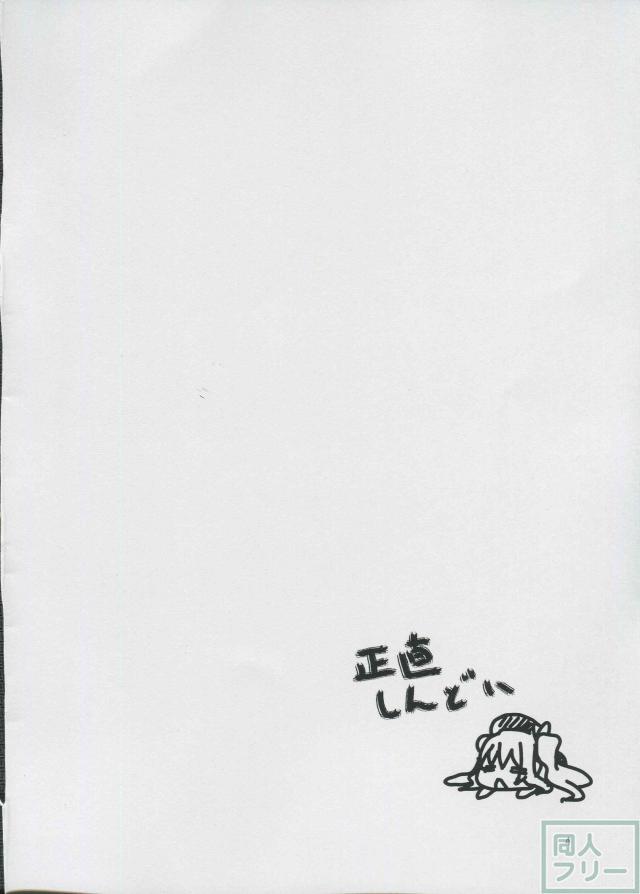 正直
しんどい
同人
フリー